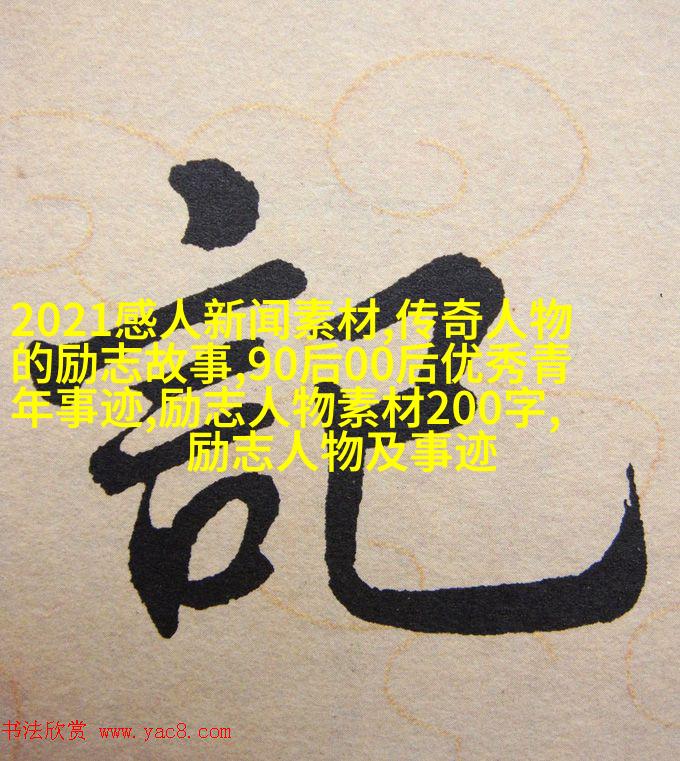 記
2021感人新闻素材,传奇人物
的励志故事,90后00后优秀青
年事迹,励志人物素材200字,
励志人物及事迹
书法欣赏 www.yac8.com